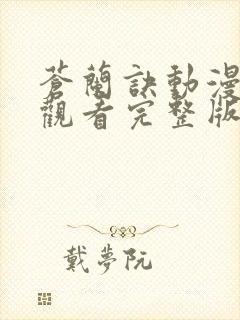 蒼蘭訣動漫
觀看完整版
戴夢阮